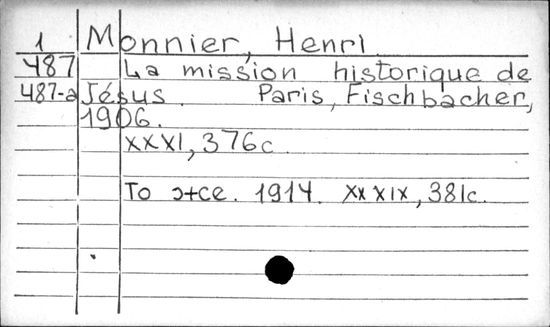 1 Monnier, Henri
487 La mission historique de
487-a Jésus. Paris, Fischbacher,
1906.
XXXI, 376с.
То э+се. 1914. XXXIX, 381с.